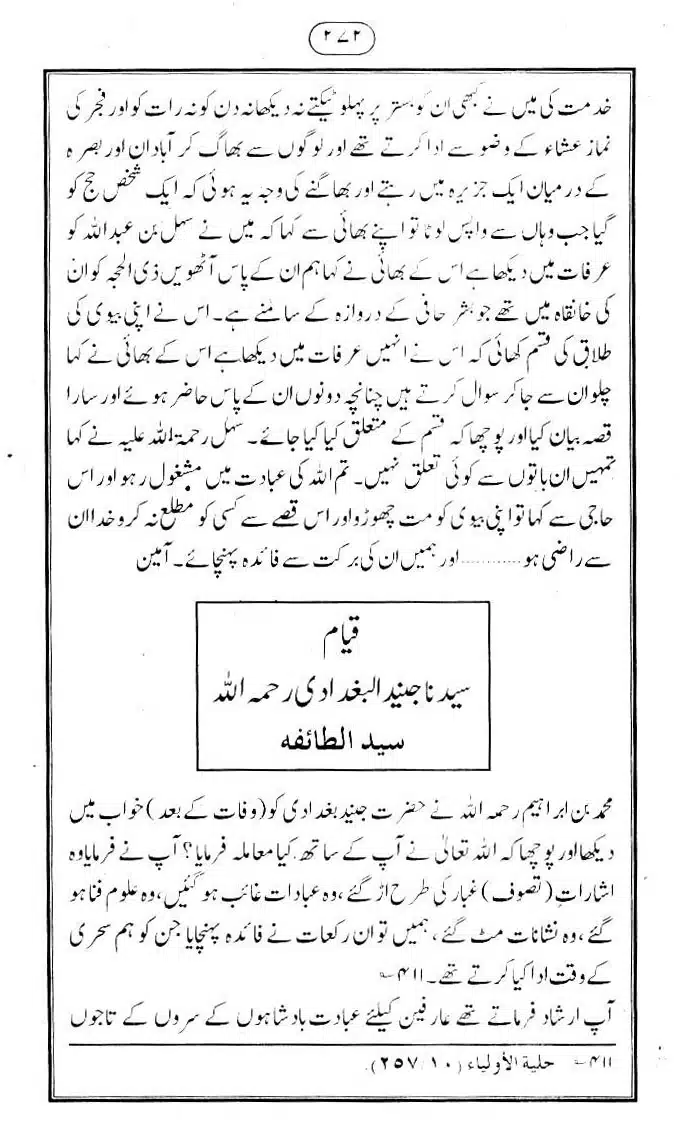 ۲۷۲
خدمت کی میں نے کبھی ان کو بستر پر پہلو ٹیکتے نہ دیکھا نہ دن کو نہ رات کو اور فجر کی
نماز عشاء کے وضو سے ادا کرتے تھے اور لوگوں سے بھاگ کر آبادان اور بصرہ
کے درمیان ایک جزیرہ میں رہتے اور بھاگنے کی وجہ یہ ہوئی کہ ایک شخص حج کو
گیا جب وہاں سے واپس لوٹا تو اپنے بھائی سے کہا کہ میں نے سہل بن عبد اللہ کو
عرفات میں دیکھا ہے اس کے بھائی نے کہا ہم ان کے پاس آٹھویں ذی الحجہ کو ان
کی خانقاہ میں تھے جو بشر حافی کے دروازہ کے سامنے ہے۔ اس نے اپنی بیوی کی
طلاق کی قسم کھائی کہ اس نے انہیں عرفات میں دیکھا ہے اس کے بھائی نے کہا
چلو ان سے جا کر سوال کرتے ہیں چنانچہ دونوں ان کے پاس حاضر ہوئے اور سارا
قصہ بیان کیا اور پوچھا کہ قسم کے متعلق کیا کیا جائے۔ سہل رحمۃ اللہ علیہ نے کہا
تمہیں ان باتوں سے کوئی تعلق نہیں۔ تم اللہ کی عبادت میں مشغول رہو اور اس
حاجی سے کہا تو اپنی بیوی کو مت چھوڑ و اور اس قصے سے کسی کو مطلع نہ کرو خدا ان
سے راضی ہو ............ اور ہمیں ان کی برکت سے فائدہ پہنچائے۔ آمین
قیام
سیدنا جنید البغدادی رحمہ اللہ
سید الطائفہ
محمد بن ابراہیم رحمہ اللہ نے حضرت جنید بغدادی کو (وفات کے بعد) خواب میں
دیکھا اور پوچھا کہ اللہ تعالیٰ نے آپ کے ساتھ کیا معاملہ فرمایا؟ آپ نے فرمایا وہ
اشاراتِ (تصوف) غبار کی طرح اڑ گئے، وہ عبادات غائب ہو گئیں، وہ علوم فنا ہو
گئے، وہ نشانات مٹ گئے، ہمیں تو ان رکعات نے فائدہ پہنچایا جن کو ہم سحری
کے وقت ادا کیا کرتے تھے۔ ۴۱۱؎
آپ ارشاد فرماتے تھے عارفین کیلئے عبادت بادشاہوں کے سروں کے تاجوں
۴۱۱؎ حلیة الأولیاء (۱۰/۲۵۷).